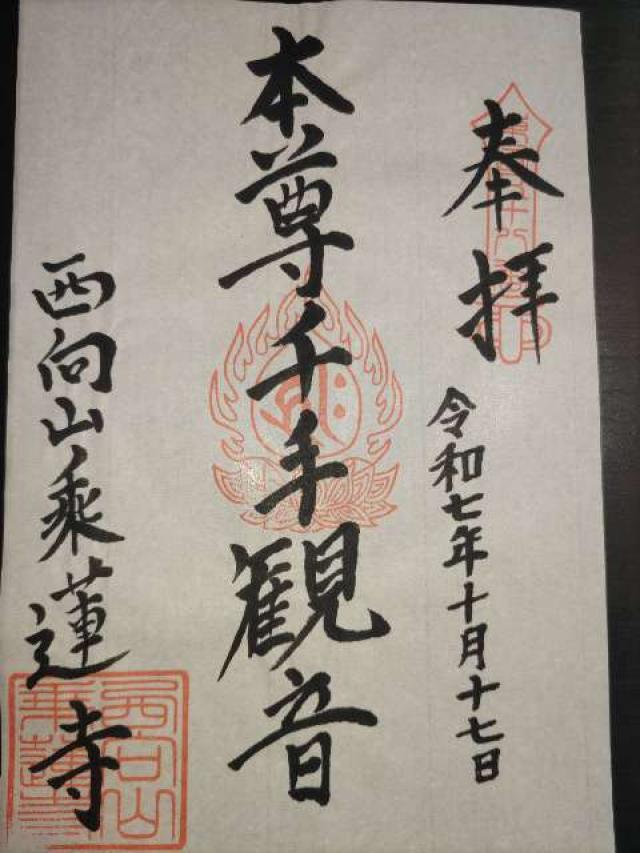 奉拝
令和七年十月十七日
本尊千手観音
西向山乘蓮寺
西向山